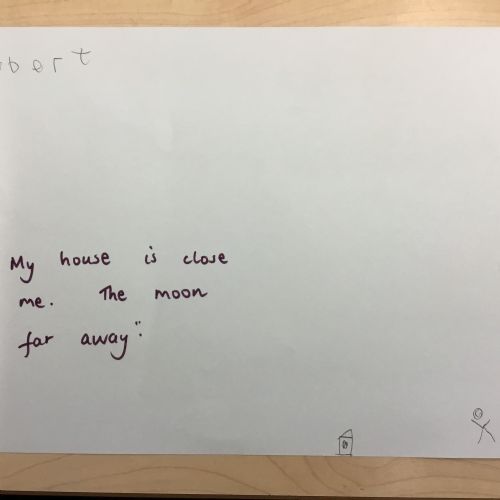 bert
My house is close
me. The moon
far away".